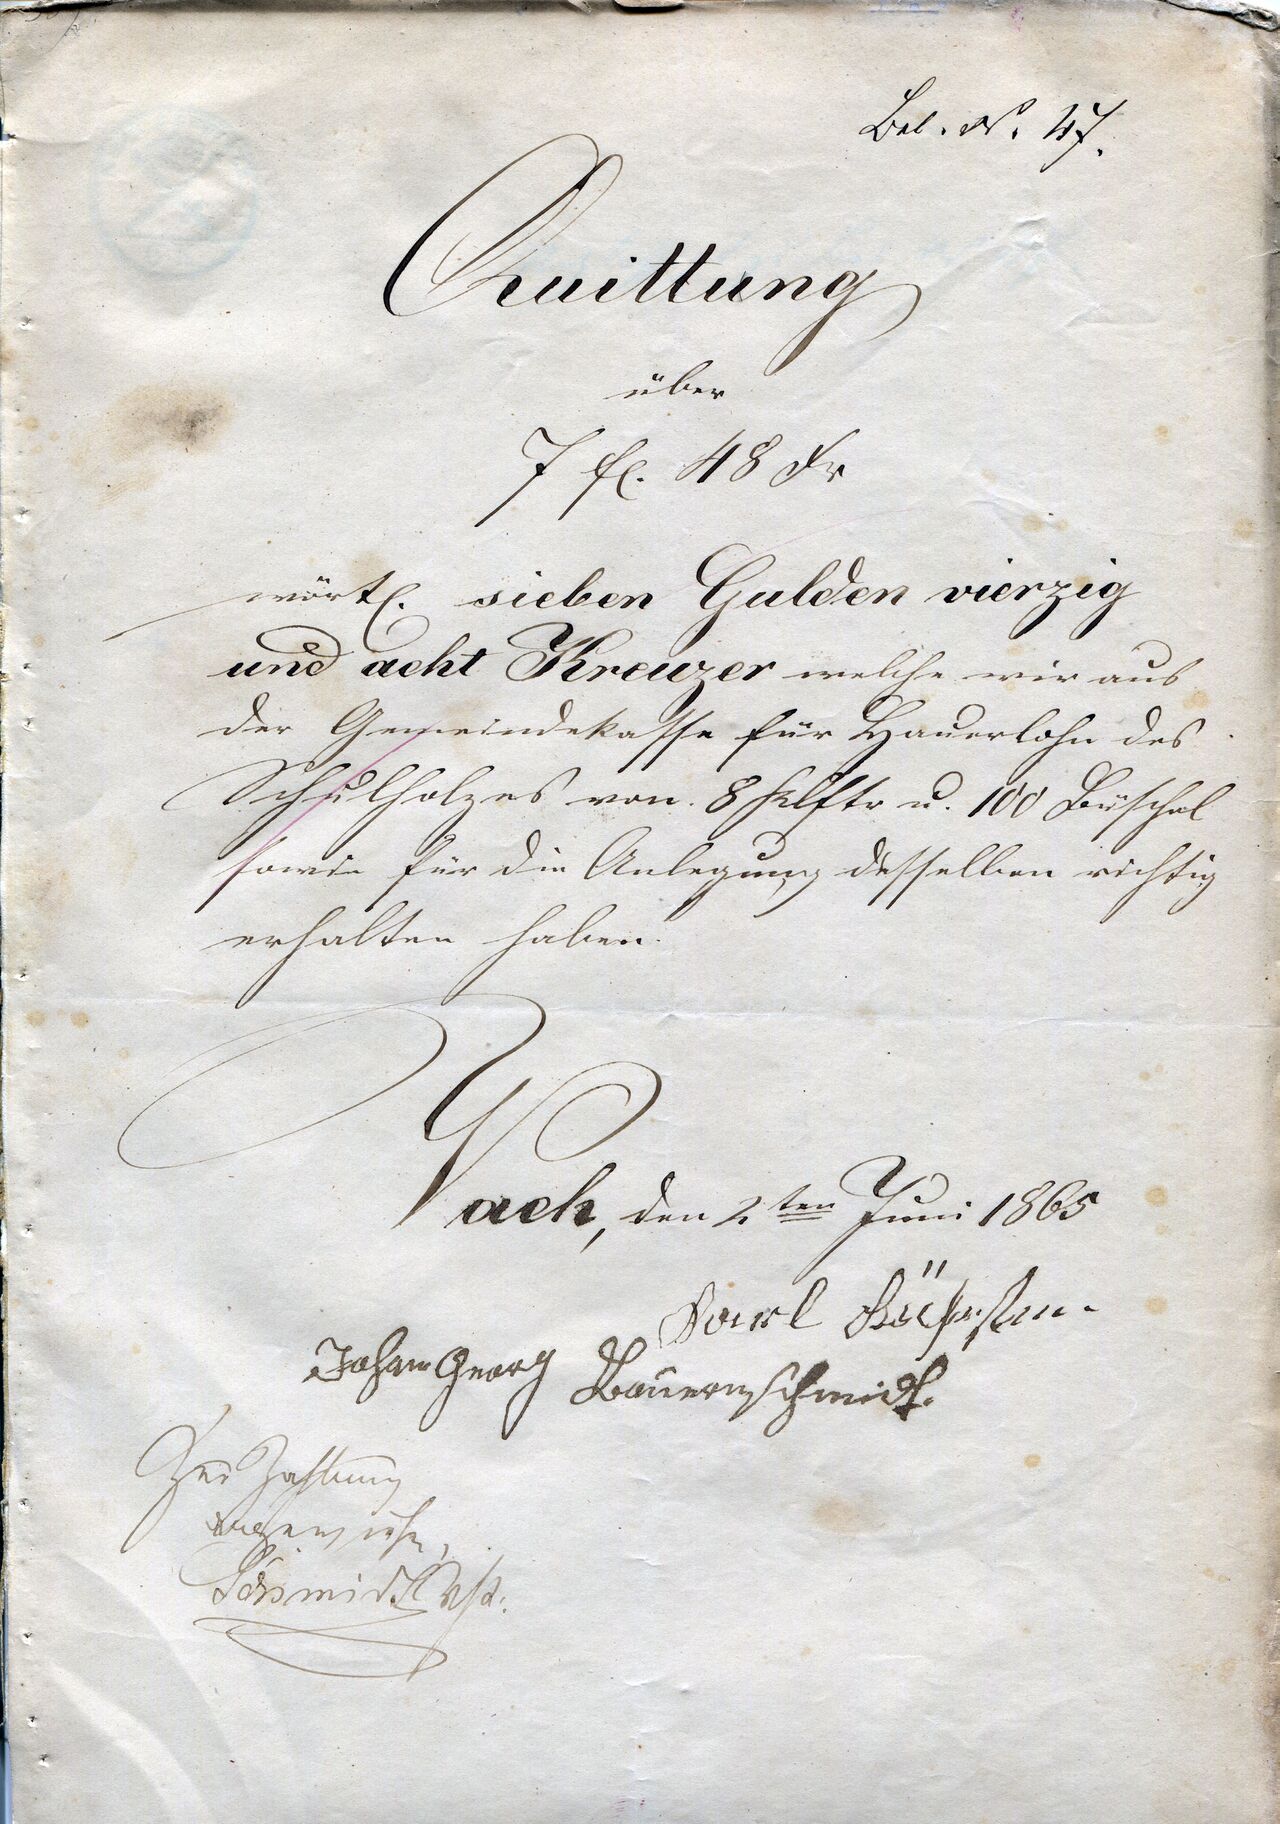 Bel. N. 47.
Quittung
über
7 fl. 48 kr
wörtl. sieben Gulden vierzig
und acht Kreuzer welche wir aus
der Gemeindekasse für Hauerlohn des
Schulholzes von 8 Klftr u. 100 Büschel
sowie für die Anlegung desselben richtig
erhalten haben.
Vach, den 2ten Juni 1865
Johann Georg Bauernschmidt.
Zur Zahlung
angewiesen,
Schmidt Vst.